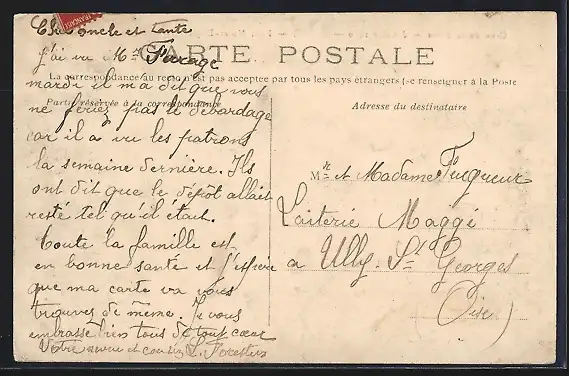 Cher oncle et Tante
j'ai vu Mr Farage
mardi il m'a dit que vous
ne feriez pas le débardage
car il a vu les patrons
la semaine dernière. Ils
ont dit que le dépôt allait
resté tel qu'il était.
Toute la famille est
en bonne santé et j'espère
que ma carte va vous
trouver de même. Je vous
embrasse bien tous de tout cœur
Votre et cousin L. Forestier
FRANÇAISE
CARTE POSTALE
La correspondance au recto n'est pas acceptée par tous les pays étrangers (se renseigner à la Poste
Partie réservée à la correspondance
Adresse du destinataire
Mr et Madame Fuqueux
Laiterie Maggi
à Ully St Georges
(Oise)